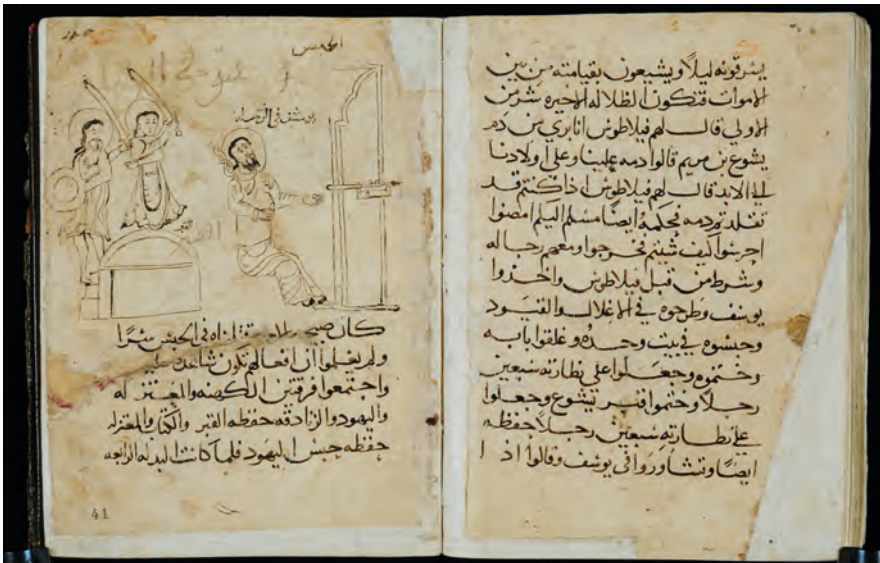 يسرقونه ليلًا ويشيعون بقيامته من بين
الاموات فتكون الظلاله الاخيره شر من
الاولي قال لهم فيلاطوس انا بري من دم
يشوع بن مريم قالوا دمه علينا وعلي اولادنا
الي الابد قال لهم فيلاطوس اذا كنتم قد
تقلدتم دمه فحكمه ايضًا مسلم اليكم امضوا
احرسوا كيف شيتم فخرجوا ومعهم رجاله
وشرط من قبل فيلاطوس واخذوا
يوسف وطرحوه في الاغلال والقيود
وحبسوه في بيت وحده وغلقوا بابه
وختموه وجعلوا علي نطارته سبعين
رجلًا وختموا قبر يشوع وجعلوا
علي نطارته سبعين رجلًا حفظه
ايضًا وتشاوروا في يوسف وقالوا اذ ا
الحبس
يوسف في
كان صحيح في الحبس سرًا
ولم يعلموا ان افعالهم تكون شاهده
واجتمعوا فرقتين الكهنه والمعتزله
واليهود والزنادقه حفظه القبر والكتاب والمعتزله
حفظه حبس اليهود فلما كانت الليله الرابعه
41